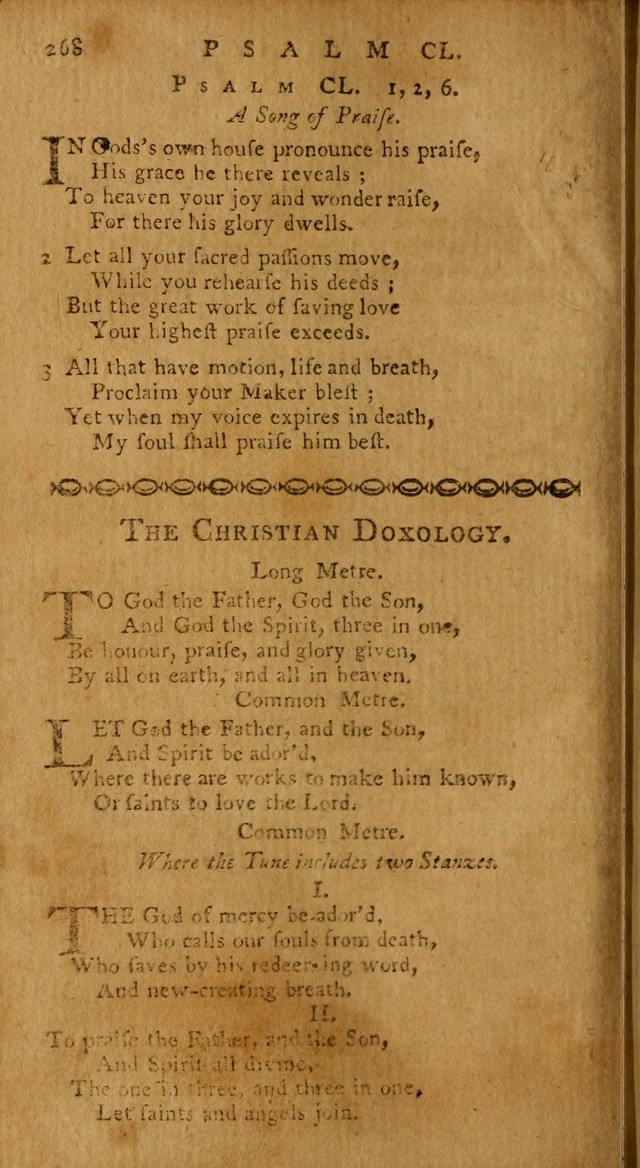 268 PSALM CL.
PSALM CL. 1, 2, 6.
A Song of Praiſe.
IN Gods's own houſe pronounce his praiſe,
His grace he there reveals ;
To heaven your joy and wonder raiſe,
For there his glory dwells.
2 Let all your ſacred paſſions move,
While you rehearſe his deeds ;
But the great work of ſaving love
Your higheſt praiſe exceeds.
3 All that have motion, life and breath,
Proclaim your Maker bleſt ;
Yet when my voice expires in death,
My ſoul ſhall praiſe him beſt.
THE CHRISTIAN DOXOLOGY.
Long Metre.
TO God the Father, God the Son,
And God the Spirit, three in one,
Be honour, praiſe, and glory given,
By all on earth, and all in heaven.
Common Metre.
LET God the Father, and the Son,
And Spirit be ador'd,
Where there are works to make him known,
Or ſaints to love the Lord.
Common Metre.
Where the Tune includes two Stanzas.
I.
THE God of mercy be ador'd,
Who calls our ſouls from death,
Who ſaves by his redeeming word,
And new-creating breath.
II.
To praiſe the Father, and the Son,
And Spirit all divine,
The one in three, and three in one,
Let ſaints and angels join.